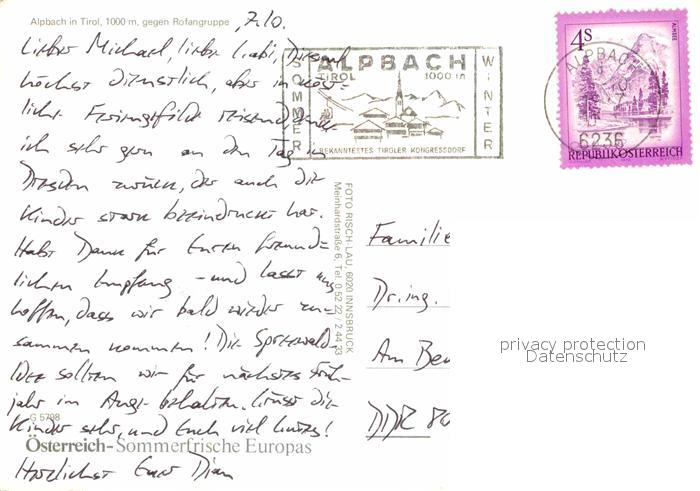 Alpbach in Tirol, 1000 m, gegen Rofangruppe
7.10.
Lieber Michael, liebe Gabi, Diesmal
höchst dienstlich, aber in köst-
liche Feriengefilde reisend, denke
ich sehr gern an den Tag in
Dresden zurück, der auch die
Kinder stark beeindruckt hat.
Habt Dank für Euren freund=
lichen Empfang – und lasst uns
hoffen, dass wir bald wieder zu-
sammen kommen! Die Spreewald-
Idee sollten wir für nächstes Früh-
jahr im Auge behalten. Grüsst die
Kinder sehr, und Euch viel Gutes!
Herzlichst Euer
G 5798
Österreich-Sommerfrische Europas
FOTO RISCH-LAU, 6020 INNSBRUCK
Meinhardstraße 6, Tel. 0 52 22 / 2 44 33
SOMMER
ALPBACH
TIROL 1000 m
BEKANNTESTES TIROLER KONGRESSDORF
WINTER
4S
ALMSEE
REPUBLIK ÖSTERREICH
ALPBACH
6236
Familie
Dr.ing.
Am Be
DDR 80
privacy protection
Datenschutz